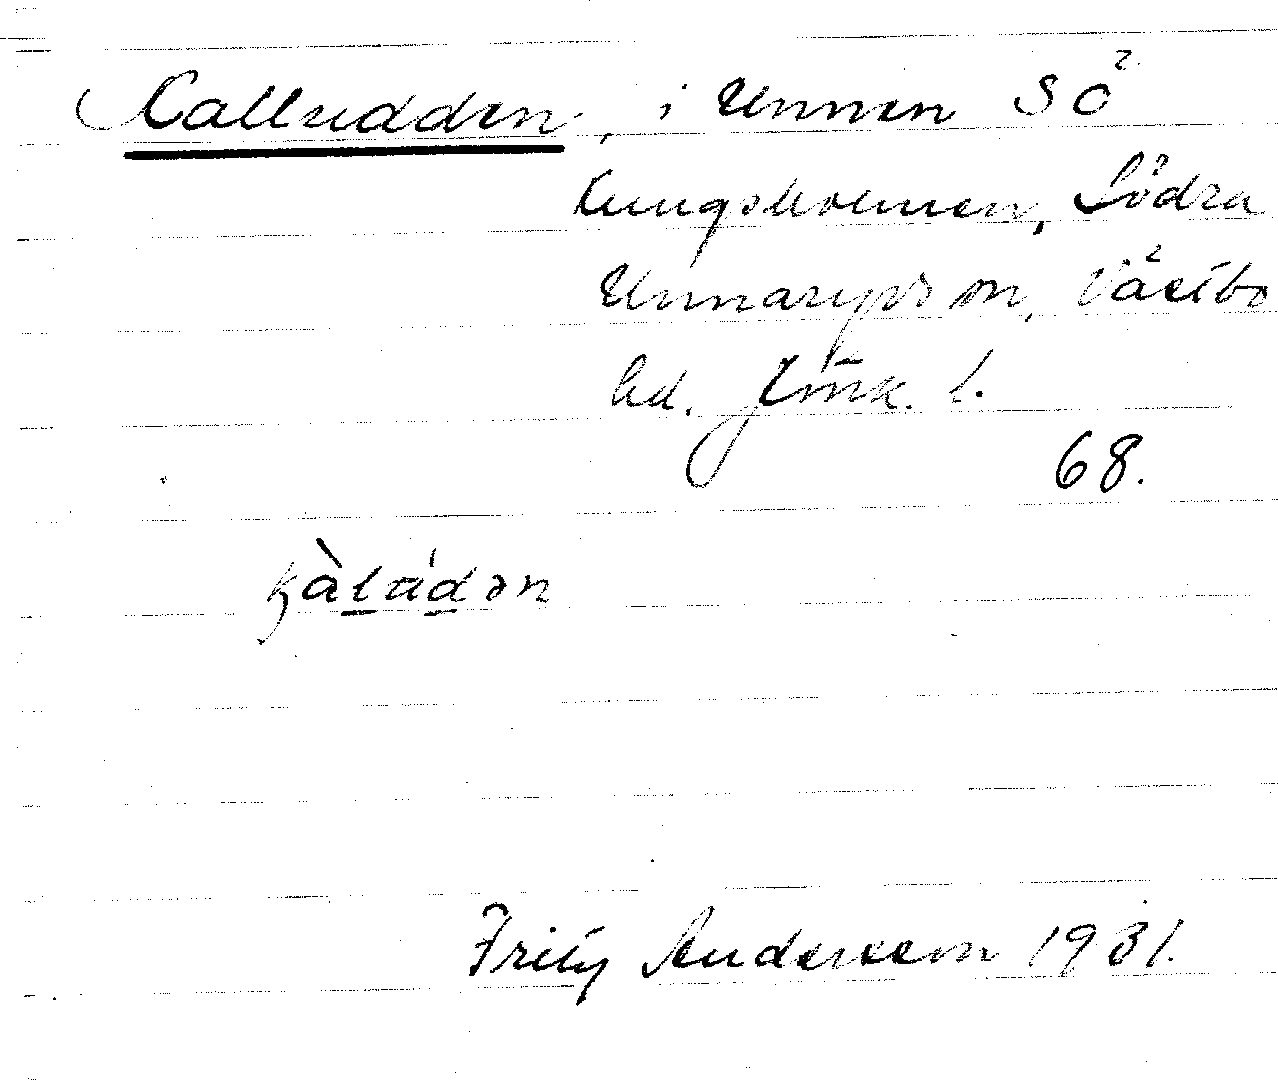 Kalludden, i Unnen SÖ
Kungsholmen, Södra
Unnaryds sn, Västbo
hd. Jönk. l.
68.
kàládən
Fritz Andersson 1931.